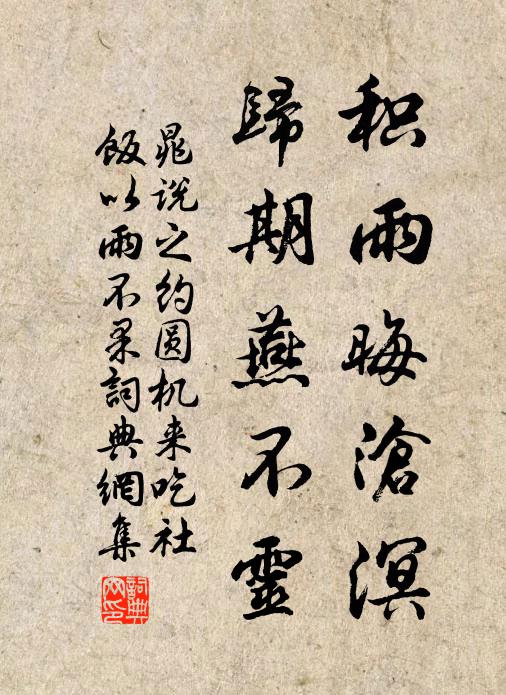 积雨晦滄溟
歸期燕不靈
晁说之约圆机来吃社
飯以雨不果詞典網集
詞典网印